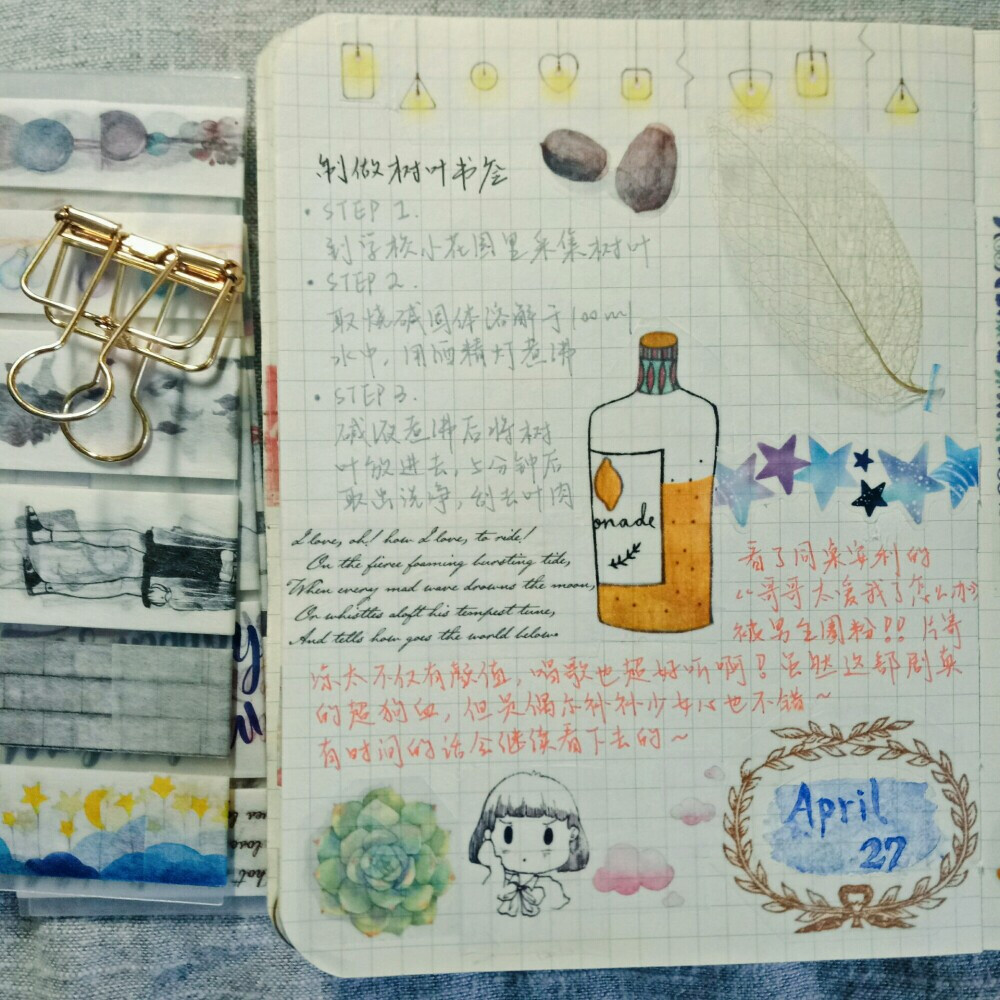 制做树叶书签
• STEP 1.
到学校小花园里采集树叶
• STEP 2.
取烧碱固体溶解于100ml
水中，用酒精灯煮沸
• STEP 3.
碱液煮沸后将树
叶放进去，5分钟后
取出洗净，刮去叶肉
onade
I love, oh! how I love, to ride!
On the fierce foaming bursting tide,
When every mad wave drowns the moon,
Or whistles aloft his tempest tune,
And tells how goes the world below
看了同桌安利的
小哥哥太宠我了怎么办
被男主圈粉!! 片寄
凉太不仅有颜值，唱歌也超好听啊! 虽然这部剧真
的超狗血，但是偶尔补补少女心也不错~
有时间的话会继续看下去的~
April
27